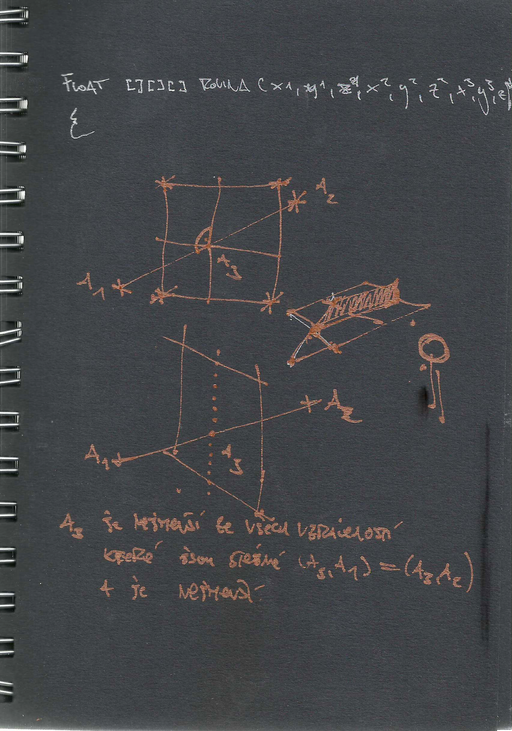 FLOAT [][][] ROVINA (x1, y1, z1, x2, y2, z2, x3, y3, z3)
{
A2
A3
A1
A2
A1
A3
A3 je NEJMENŠÍ ZE VŠECH VZDÁLENOSTÍ
KTERÉ JSOU STEJNÉ (A3, A1) = (A3, A2)
A je NEJMENŠÍ